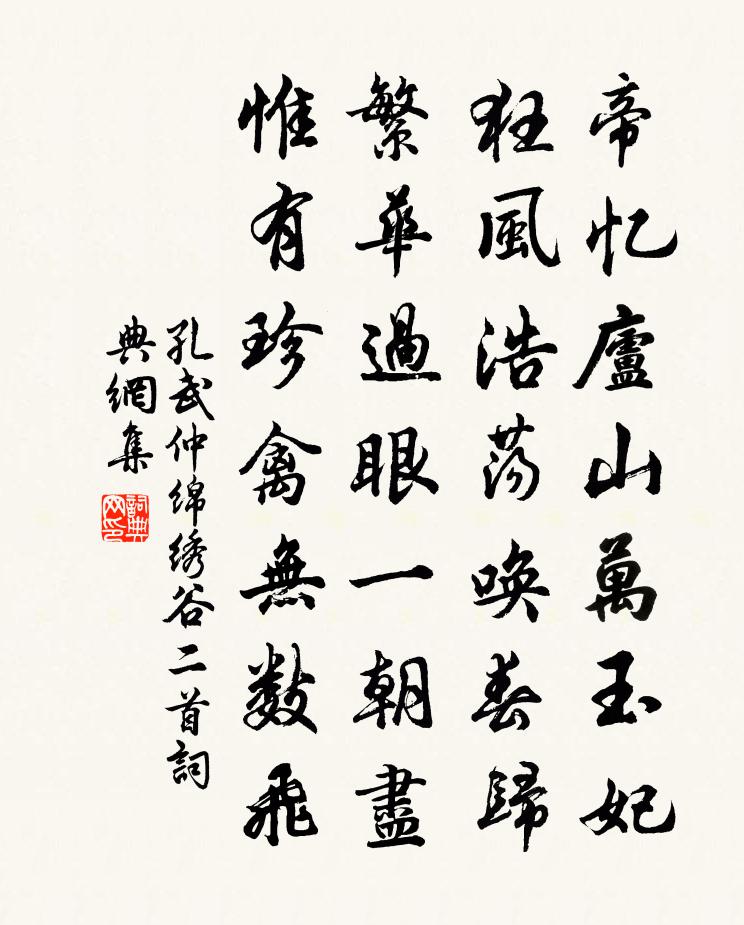 帝忆廬山萬玉妃
狂風浩荡唤春歸
繁華過眼一朝盡
惟有珍禽無数飛
孔武仲绵绣谷二首詞
典網集
詞典网印